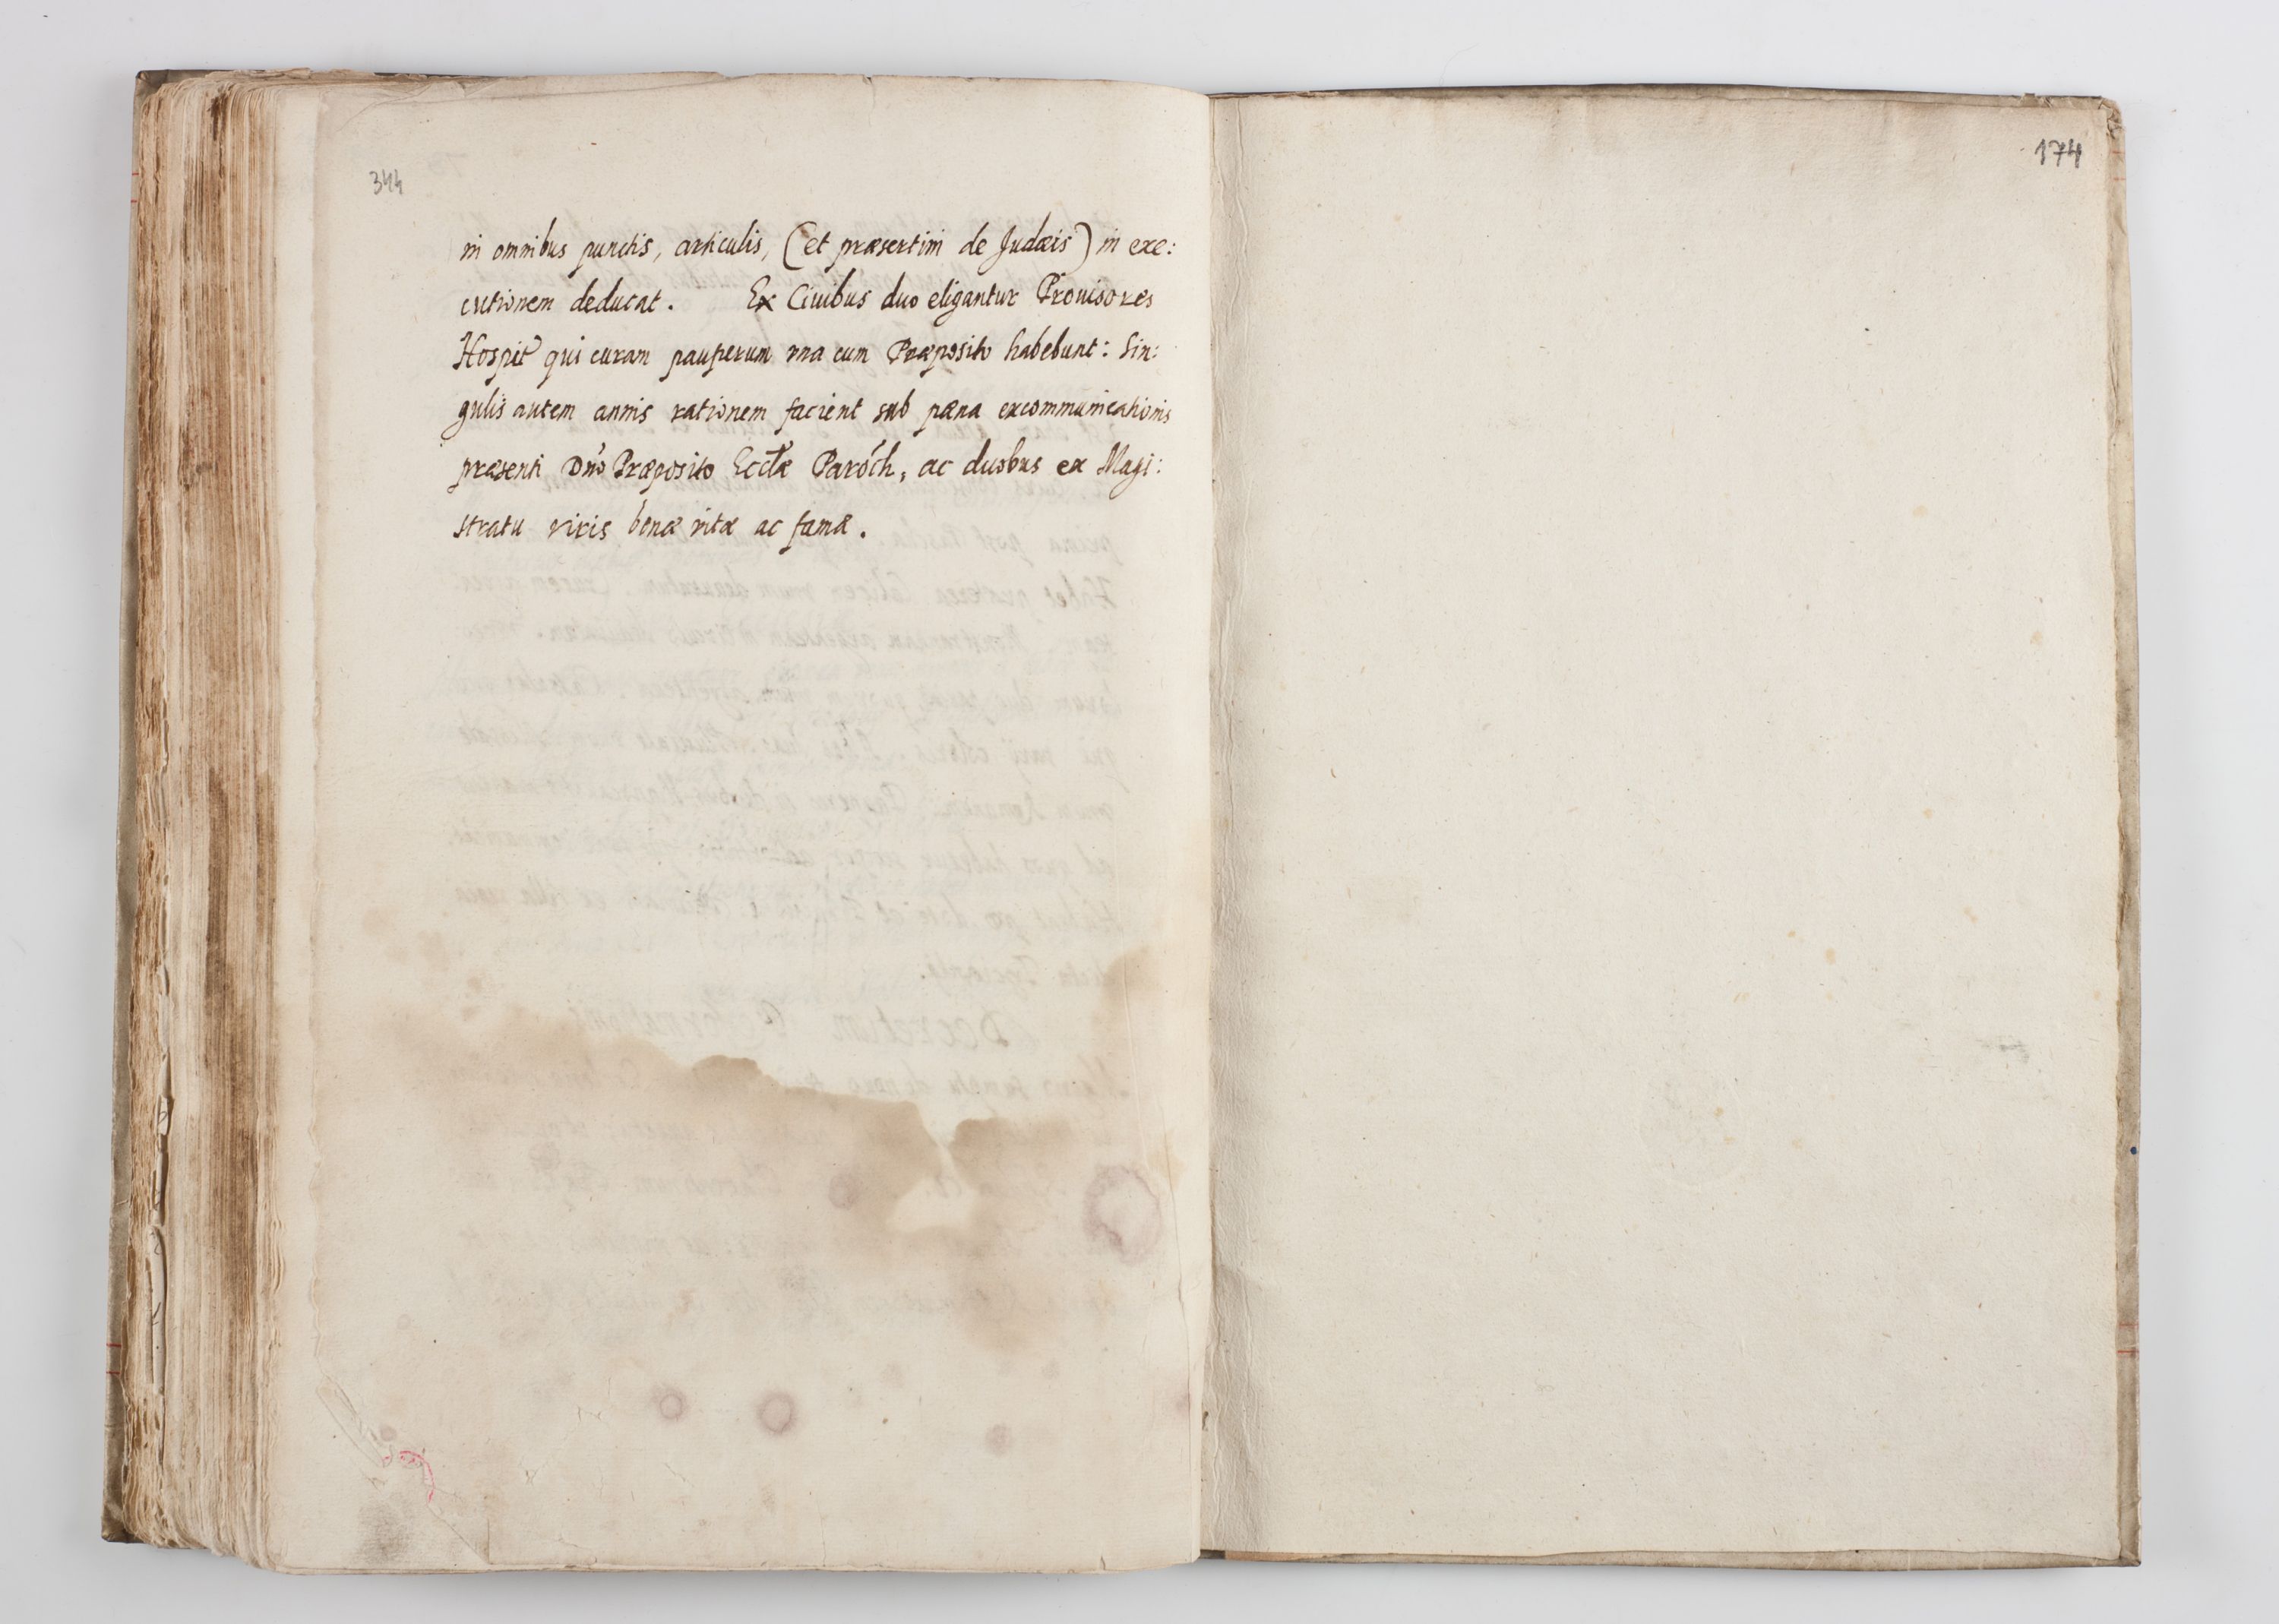 344
in omnibus punctis, articulis, (et præsertim de Judæis) in exe:
cutionem deducat. Ex Ciuibus duo eligantur Prouisores
Hospit qui curam pauperum vna cum Præposito habebunt: Sin:
gulis autem annis rationem facient sub pæna excommunicationis
præsenti Dno Præposito Ecclæ Paroch, ac duobus ex Magi:
stratu viris bonæ vitæ ac famæ.
174